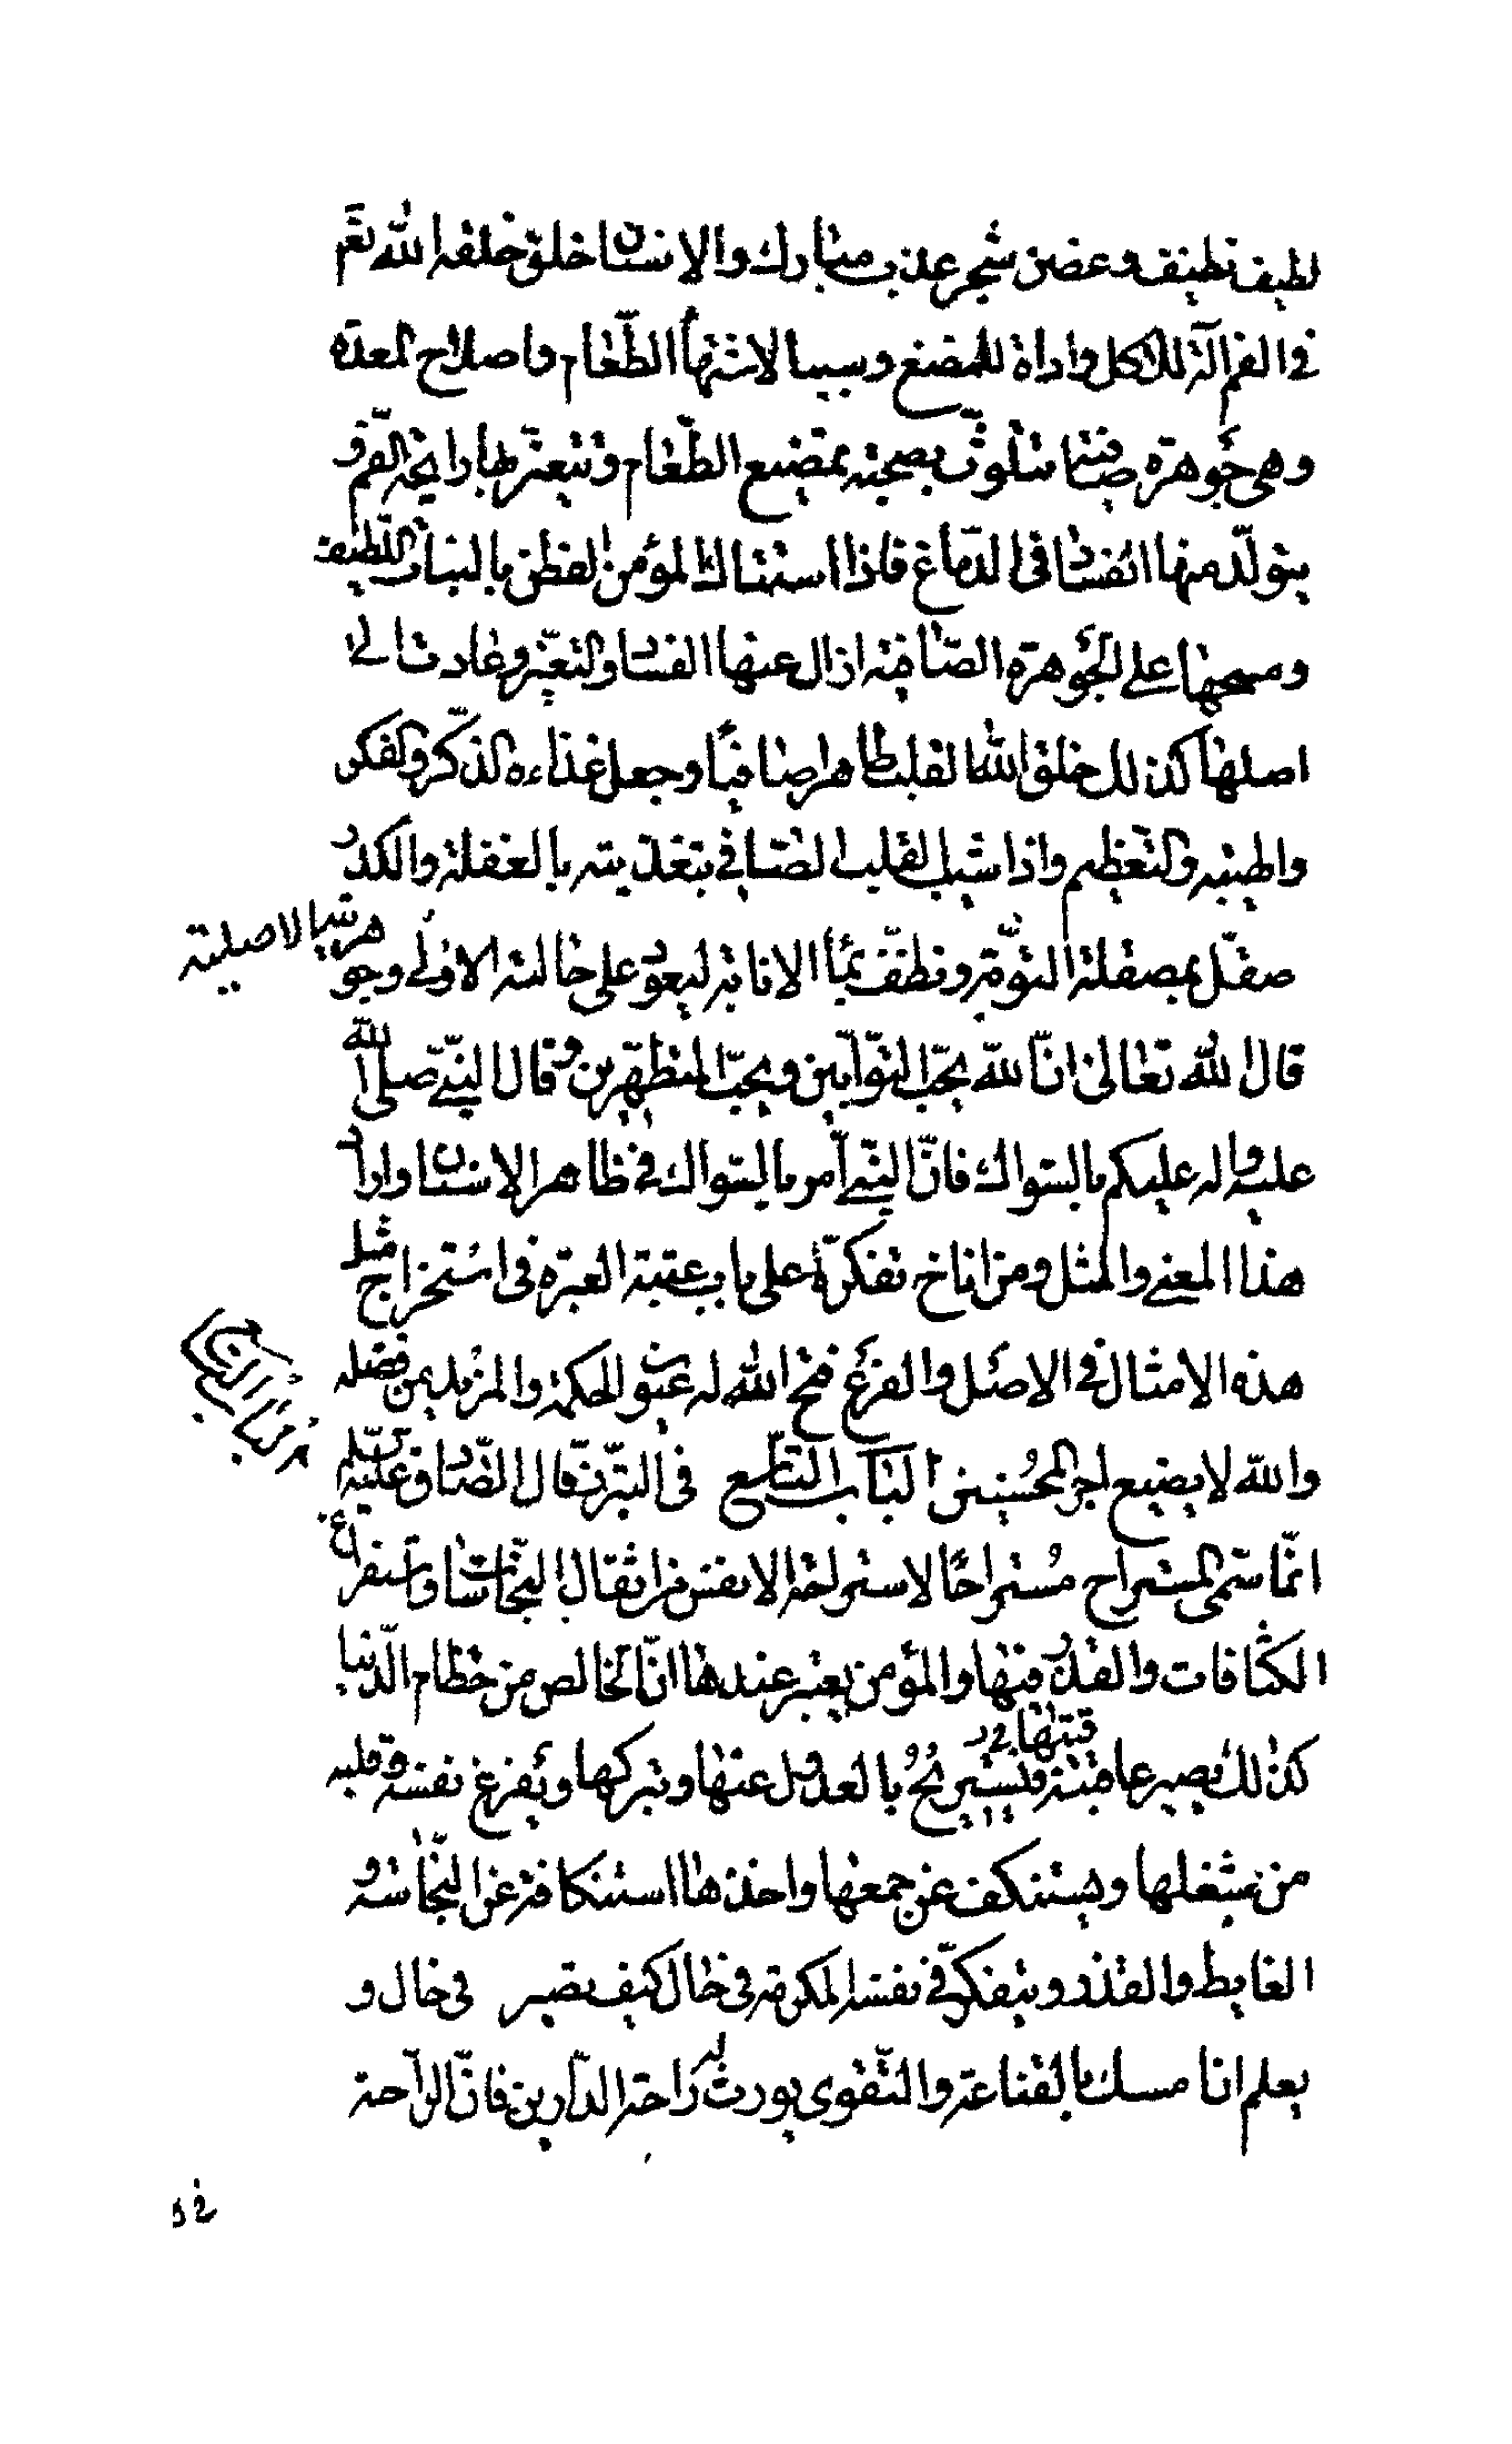 لطيف نظيف وغصن شجر عذب مبارك والاسنان خلق خلقه الله تعم
فى الفم آلة للاكل واداة للمضغ وسببا لاشتهاء الطّعام واصلاح المعدة
وهى جوهرة صافية تتلوّث بصحبة تمضيع الطّعام وتتغيّر بها رايحة الفم و
يتولّد منها الفساد فى الدّماغ فاذا استاك المؤمن الفطن بالنبات اللّطيف
ومسحها على الجوهرة الصّافية ازال عنها الفساد والتغيّر وعادت الى
اصلها كذلك خلق الله القلب طاهرا صافيا وجعل غذاءه الذّكر والفكر
والهيبه والتعظيم واذا شيب القلب الصّافى بتغذيته بالغفلة والكدر
صقّل بمصقلة التّوبة ونظّف بماء الانابة ليعود على حالته الاولى وجوهرتها الاصلية
قال الله تعالى انّ الله يحبّ التوّابين ويحبّ المتطهّرين وقال النّبىّ صلى الله
عليه واله عليكم بالسّواك فانّ النّبى امر بالسّواك فى ظاهر الاسنان واراد
هذا المعنى والمثل ومن اناخ تفكرّه على باب عتبة العبرة فى استخراج مثل
هذه الامثال فى الاصل والفرع فتح الله له عيون الحكمة والمزيد من فضله
والله لا يضيع اجر المحسنين الباب التاسع فى التبرّز قال الصّادق عليه السّلم
انّما سمّى المستراح مستراحًا لاستراحة الانفس من اثقال النّجاسات واستفراغ
الكثافات والقذر فيها والمؤمن يعتبر عندها انّ الخالص من حطام الدّنيا
كذلك يصير عاقبته فيستريح بالعدول عنها وتركها ويفرغ نفسه وقلبه
من شغلها ويستنكف عن جمعها واخذها استنكافه عن النّجاسة و
الغايط والقذر ويتفكّر فى نفسه المكرمة فى حال كيف تصير فى حال و
يعلم ان التمسك بالقناعة والتّقوى يورث له راحة الدّارين فانّ الرّاحة